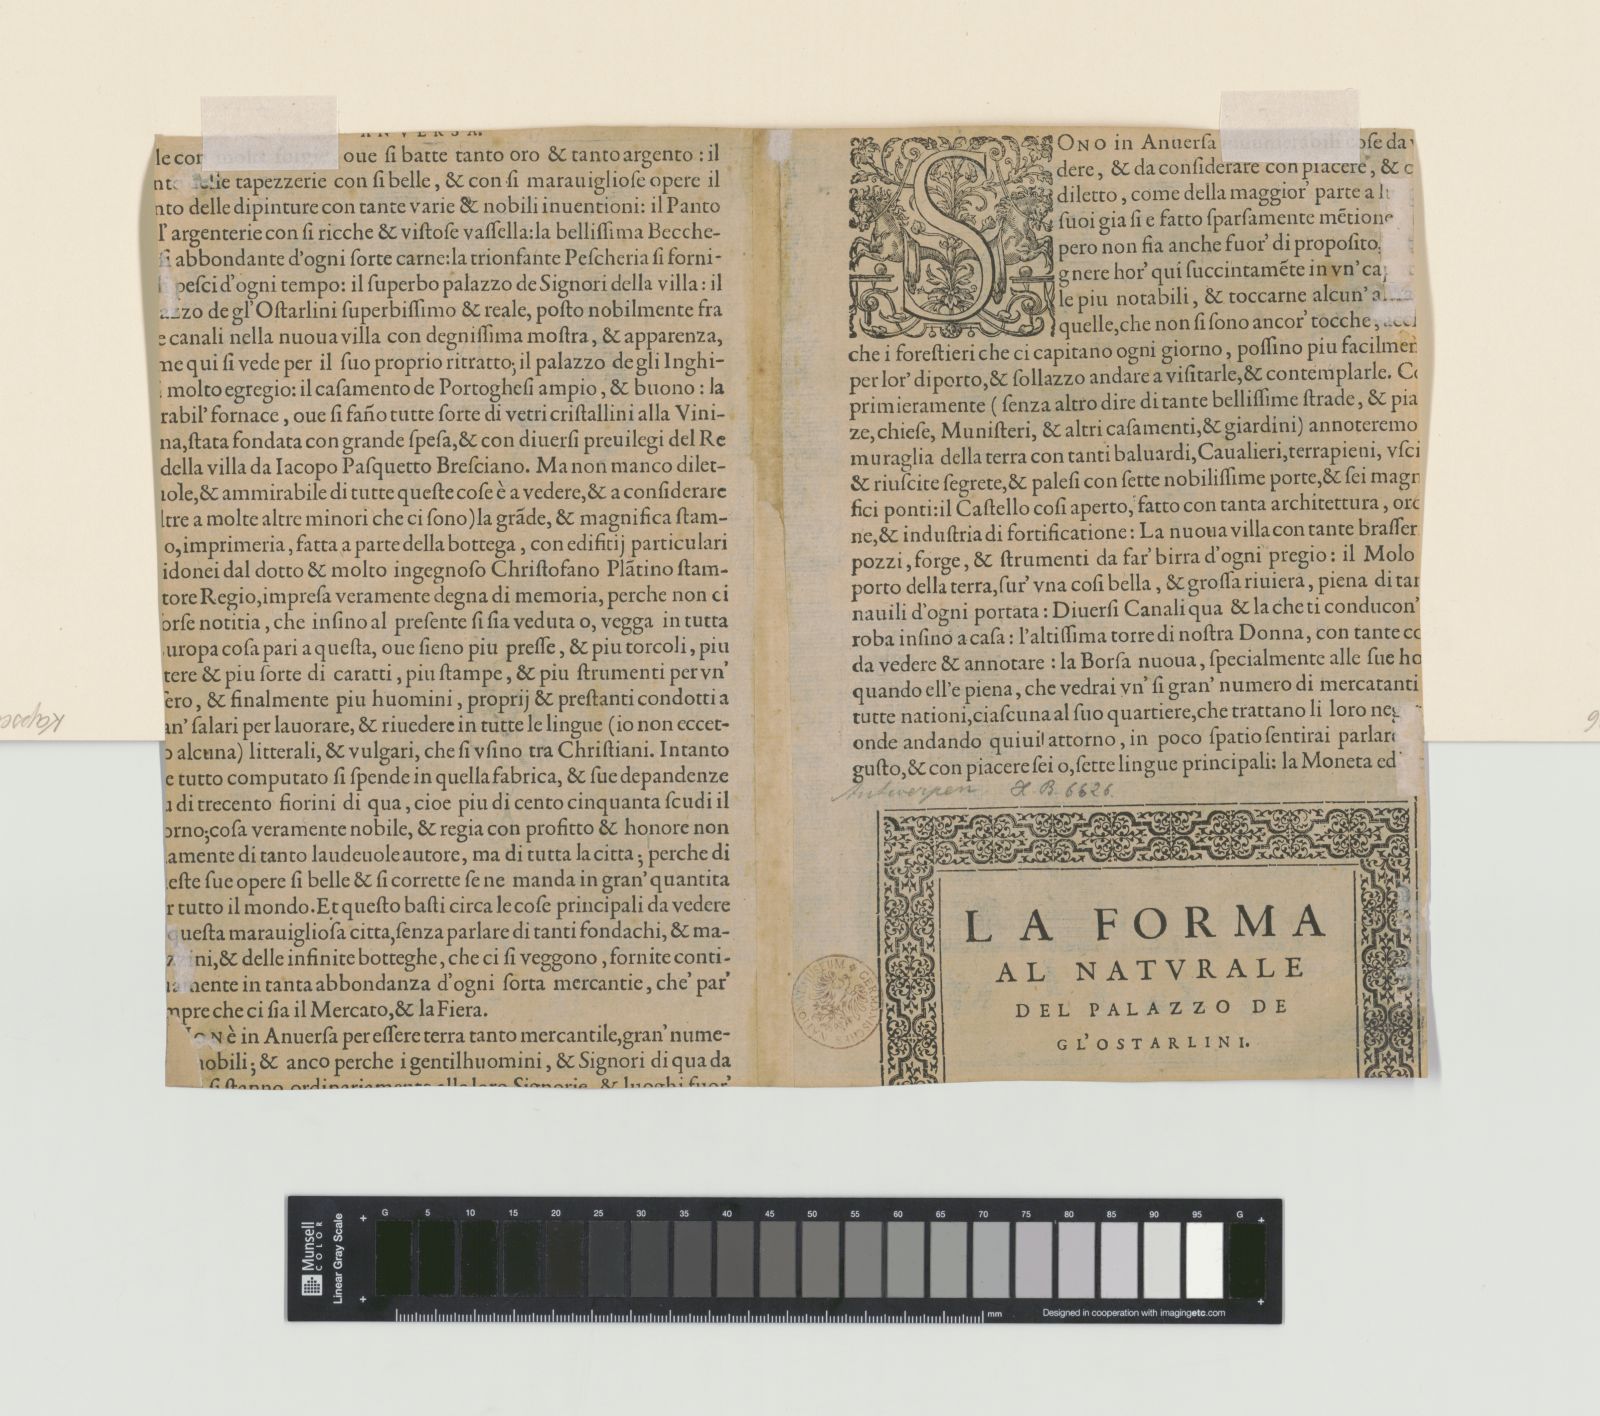 ANVERSA.
le con molte forge, oue ſi batte tanto oro & tanto argento : il
delle tapezzerie con ſi belle, & con ſi marauiglioſe opere il
nto delle dipinture con tante varie & nobili inuentioni: il Panto
l'argenterie con ſi ricche & viſtoſe vaſſella: la belliſſima Becche-
ſi abbondante d'ogni ſorte carne: la trionfante Peſcheria ſi forni-
peſci d'ogni tempo: il ſuperbo palazzo de Signori della villa : il
azzo de gl'Oſtarlini ſuperbiſſimo & reale, poſto nobilmente fra
e canali nella nuoua villa con degniſſima moſtra, & apparenza,
me qui ſi vede per il ſuo proprio ritratto; il palazzo degli Inghi-
molto egregio: il caſamento de Portogheſi ampio, & buono : la
rabil' fornace, oue ſi fañо tutte ſorte di vetri criſtallini alla Vini-
na, ſtata fondata con grande ſpeſa, & con diuerſi preuilegi del Re
della villa da Iacopo Paſquetto Breſciano. Ma non manco dilet-
uole, & ammirabile di tutte queſte coſe è a vedere, & a conſiderare
ltre a molte altre minori che ci ſono) la grãde, & magnifica ſtam-
o, imprimeria, fatta a parte della bottega, con edifitij particulari
idonei dal dotto & molto ingegnoſo Chriſtofano Plãtino ſtam-
tore Regio, impreſa veramente degna di memoria, perche non ci
orſe notitia, che inſino al preſente ſi ſia veduta o, vegga in tutta
uropa coſa pari a queſta, oue ſieno piu preſſe, & piu torcoli, piu
tere & piu ſorte di caratti, piu ſtampe, & piu ſtrumenti per vn'
ero, & finalmente piu huomini, proprij & preſtanti condotti a
an' ſalari per lauorare, & riuedere in tutte le lingue (io non eccet-
o alcuna) litterali, & vulgari, che ſi vſino tra Chriſtiani. Intanto
e tutto computato ſi ſpende in quella fabrica, & ſue depandenze
u di trecento fiorini di qua, cioe piu di cento cinquanta ſcudi il
orno; coſa veramente nobile, & regia con profitto & honore non
amente di tanto laudeuole autore, ma di tutta la citta ; perche di
ueſte ſue opere ſi belle & ſi corrette ſe ne manda in gran' quantita
r tutto il mondo. Et queſto baſti circa le coſe principali da vedere
queſta marauiglioſa citta, ſenza parlare di tanti fondachi, & ma-
zzini, & delle infinite botteghe, che ci ſi veggono, fornite conti-
uamente in tanta abbondanza d'ogni ſorta mercantie, che' par'
mpre che ci ſia il Mercato, & la Fiera.
NON è in Anuerſa per eſſere terra tanto mercantile, gran' nume-
nobili; & anco perche i gentilhuomini, & Signori di qua da
ſi ſtanno ordinariamente alle loro Signorie, & luoghi fuor'
SONO in Anuerſa innumerabili coſe da v
dere, & da conſiderare con piacere, & c
diletto, come della maggior' parte a
ſuoi gia ſi e fatto ſparſamente mẽtione
pero non ſia anche fuor' di propoſito,
gnere hor' qui ſuccintamẽte in vn' ca
le piu notabili, & toccarne alcun'
quelle, che non ſi ſono ancor' tocche,
che i foreſtieri che ci capitano ogni giorno, poſſino piu facilmen
per lor' diporto, & ſollazzo andare a viſitarle, & contemplarle. Co
primieramente ( ſenza altro dire di tante belliſſime ſtrade, & pia
ze, chieſe, Muniſteri, & altri caſamenti, & giardini) annoteremo
muraglia della terra con tanti baluardi, Caualieri, terrapieni, vſci
& riuſcite ſegrete, & paleſi con ſette nobiliſſime porte, & ſei magn
fici ponti: il Caſtello coſi aperto, fatto con tanta architettura, ord
ne, & induſtria di fortificatione: La nuoua villa con tante braſſer
pozzi, forge, & ſtrumenti da far' birra d'ogni pregio: il Molo
porto della terra, ſur' vna coſi bella, & groſſa riuiera, piena di tan
nauili d'ogni portata : Diuerſi Canali qua & la che ti conducon'
roba inſino a caſa: l'altiſſima torre di noſtra Donna, con tante co
da vedere & annotare : la Borſa nuoua, ſpecialmente alle ſue ho
quando ell'e piena, che vedrai vn' ſi gran' numero di mercatanti
tutte nationi, ciaſcuna al ſuo quartiere, che trattano li loro neg
onde andando quiui attorno, in poco ſpatio ſentirai parlar
guſto, & con piacere ſei o, ſette lingue principali: la Moneta ed
Antwerpen H. B. 6626.
LA FORMA
AL NATVRALE
DEL PALAZZO DE
GL'OSTARLINI.
GERMANISCHES NATIONALMUSEUM
Kapsel
6
Munsell
COLOR
Linear Gray Scale
G 5 10 15 20 25 30 35 40 45 50 55 60 65 70 75 80 85 90 95 G
mm
Designed in cooperation with imagingetc.com